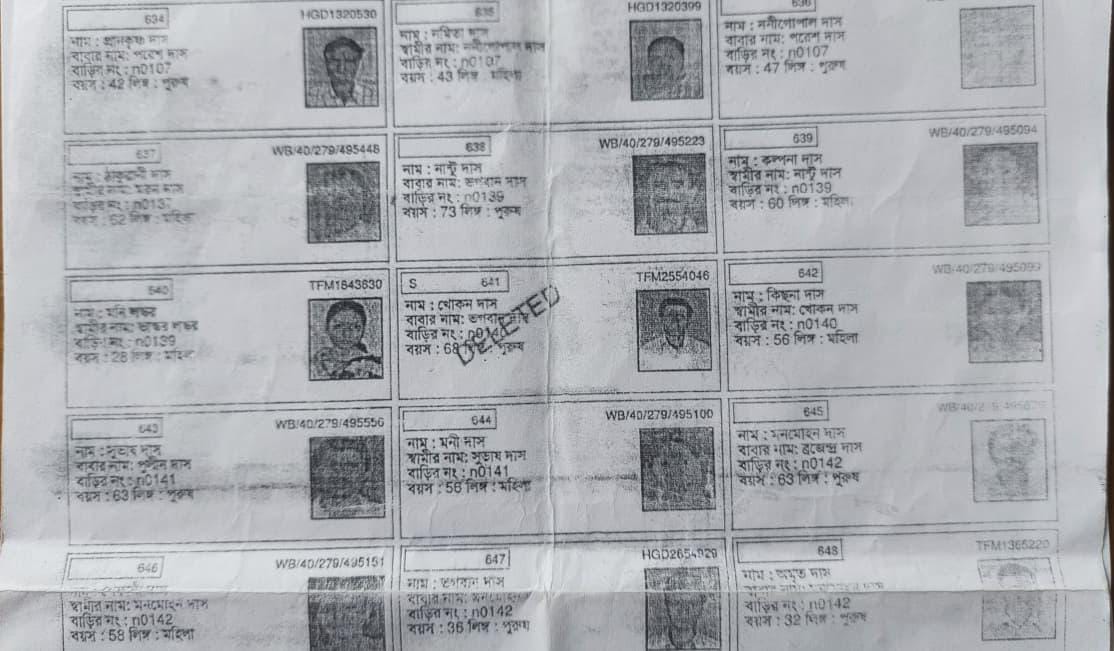 634 HGD1320530
নাম : প্রানকৃষ্ণ দাস
বাবার নাম: পরেশ দাস
বাড়ির নং : n0107
বয়স : 42 লিঙ্গ : পুরুষ
635 HGD1320399
নাম : নমিতা দাস
স্বামীর নাম: ননীগোপাল দাস
বাড়ির নং : n0107
বয়স : 43 লিঙ্গ : মহিলা
636
নাম : ননীগোপাল দাস
বাবার নাম: পরেশ দাস
বাড়ির নং : n0107
বয়স : 47 লিঙ্গ : পুরুষ
637 WB/40/279/495448
নাম : দাস
স্বামীর নাম: দাস
বাড়ির নং : n0137
বয়স : 62 লিঙ্গ : মহিলা
638 WB/40/279/495223
নাম : নান্টু দাস
বাবার নাম: ভগবান দাস
বাড়ির নং : n0139
বয়স : 73 লিঙ্গ : পুরুষ
639 WB/40/279/495094
নাম : কল্পনা দাস
স্বামীর নাম: নান্টু দাস
বাড়ির নং : n0139
বয়স : 60 লিঙ্গ : মহিলা
640 TFM1643630
নাম : মনি লস্কর
স্বামীর নাম: লস্কর
বাড়ির নং : n0139
বয়স : 28 লিঙ্গ : মহিলা
S 641 TFM2554046
নাম : খোকন দাস
বাবার নাম: ভগবান দাস
বাড়ির নং : n0140
বয়স : 68 লিঙ্গ : পুরুষ
DELETED
642 WB/40/279/495093
নাম : কিছনা দাস
স্বামীর নাম: খোকন দাস
বাড়ির নং : n0140
বয়স : 56 লিঙ্গ : মহিলা
643 WB/40/279/495556
নাম : সুভাষ দাস
বাবার নাম: পুলিন দাস
বাড়ির নং : n0141
বয়স : 63 লিঙ্গ : পুরুষ
644 WB/40/279/495100
নাম : মনী দাস
স্বামীর নাম: সুভাষ দাস
বাড়ির নং : n0141
বয়স : 56 লিঙ্গ : মহিলা
645
নাম : মনমোহন দাস
বাবার নাম: ব্রজেন্দ্র দাস
বাড়ির নং : n0142
বয়স : 63 লিঙ্গ : পুরুষ
646 WB/40/279/495151
দাস
স্বামীর নাম: মনমোহন দাস
বাড়ির নং : n0142
বয়স : 58 লিঙ্গ : মহিলা
647 HGD2654929
নাম : ভগবান দাস
বাবার নাম: মনমোহন
বাড়ির নং : n0142
বয়স : 36 লিঙ্গ : পুরুষ
648 TFM1365220
নাম : অমৃত দাস
বাড়ির নং : n0142
বয়স : 32 লিঙ্গ : পুরুষ